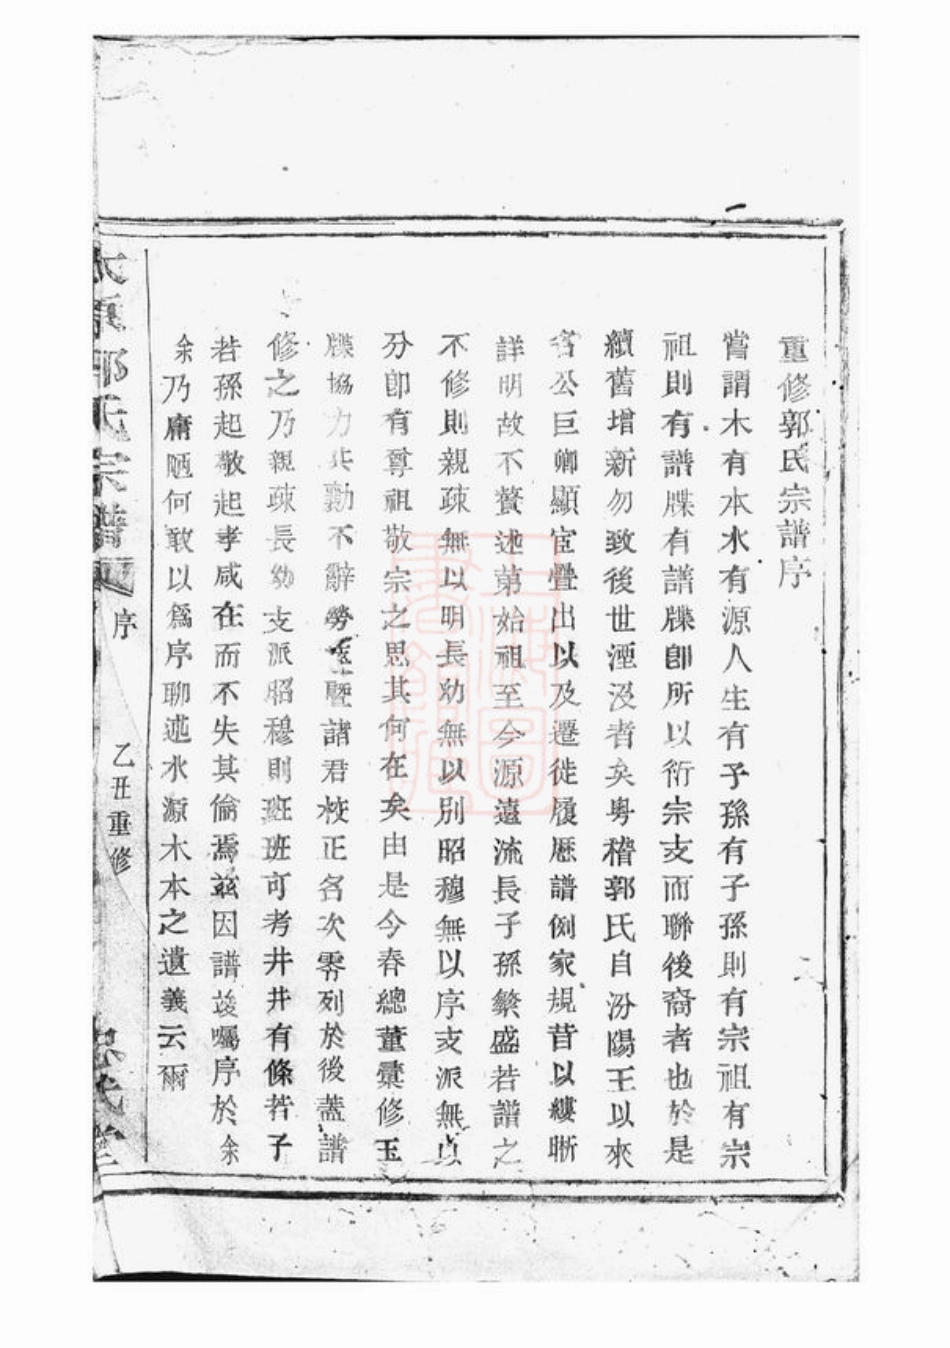 重修郭氏宗譜序
嘗謂木有本水有源人生有子孫有子孫則有宗祖有宗
祖則有譜牒有譜牒卽所以衍宗支而聯後裔者也於是
續舊增新勿致後世湮沒者矣粤稽郭氏自汾陽王以來
名公巨卿顯宦疊出以及遷徙履歷譜例家規昔以縷晰
詳明故不贅述第始祖至今源遠流長子孫繁盛若譜之
不修則親疎無以明長幼無以別昭穆無以序支派無以
分卽有尊祖敬宗之思其何在矣由是今春總董彚修玉
牒協力共勷不辭勞 曁諸君校正名次零列於後蓋譜
修之乃親疎長幼支派昭穆則班班可考井井有條若子
若孫起敬起孝咸在而不失其倫焉兹因譜竣囑序於余
余乃庸陋何敢以爲序聊述水源木本之遺義云爾
太原郭氏宗譜 序 乙丑重修 堂